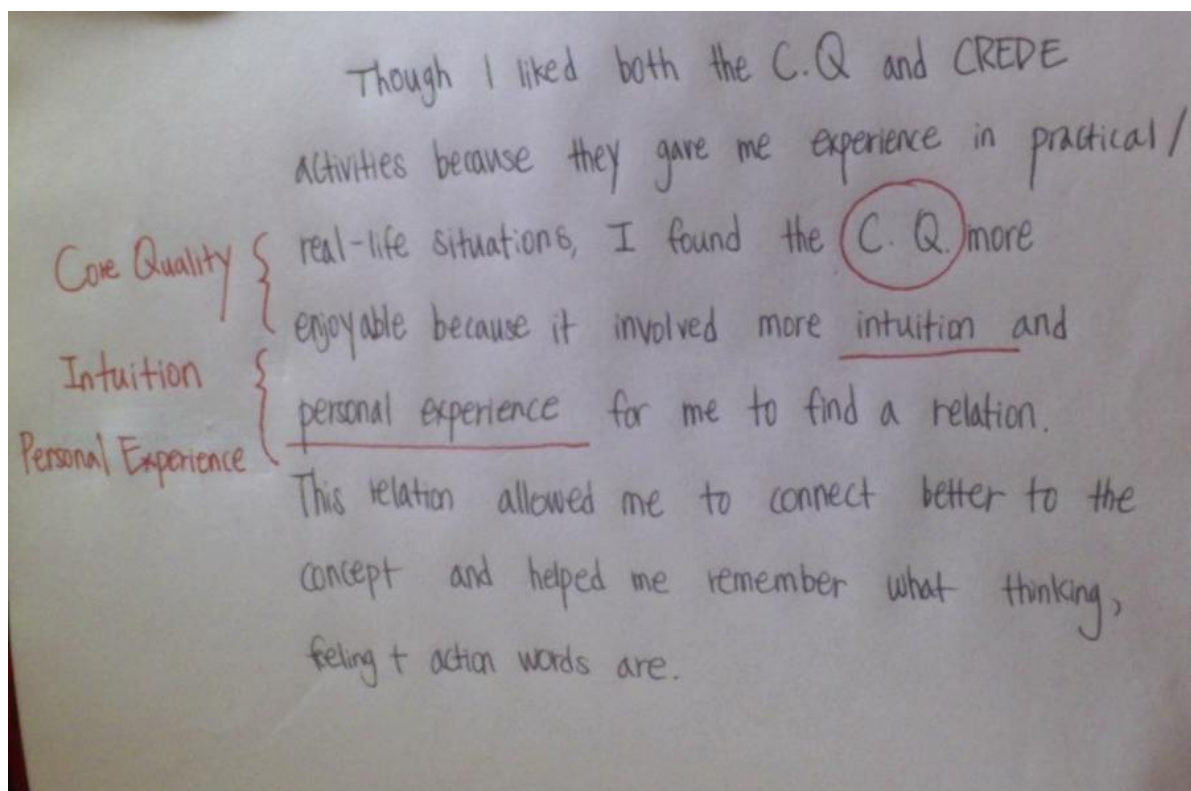 Though I liked both the C.Q and CREDE
activities because they gave me experience in practical/
real-life situations, I found the C. Q. more
enjoyable because it involved more intuition and
personal experience for me to find a relation.
This relation allowed me to connect better to the
concept and helped me remember what thinking,
feeling + action words are.
Core Quality
Intuition
Personal Experience